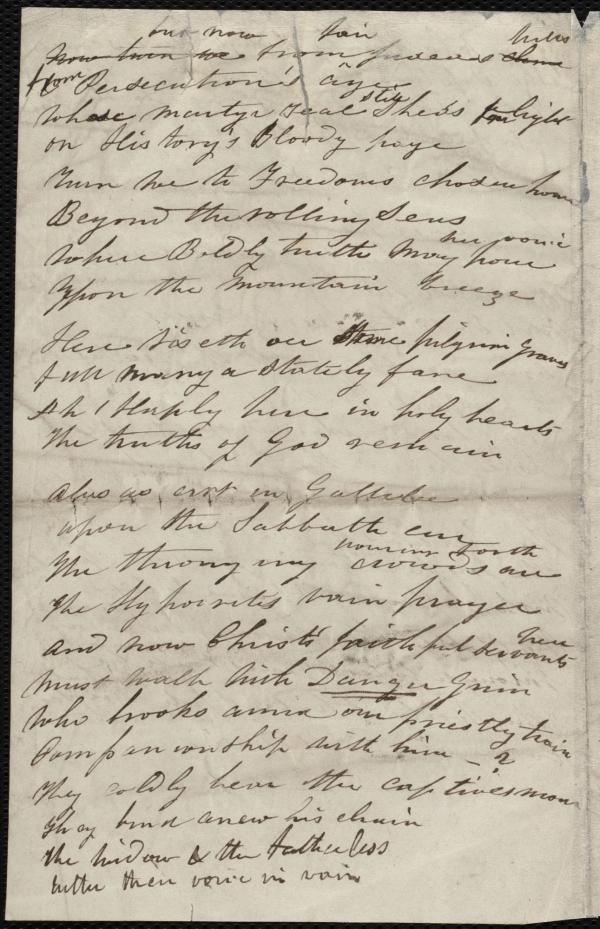 but now fair hills
Now turn we from Judeas clime
from Persecution's age
Whose martyr zeal still sheds light
on History's Bloody page
Turn we to Freedoms chosen home
Beyond the rolling Seas
Where Boldly truth may her voice pour
Upon the Mountain breeze
Here riseth our pilgrim graves
full many a stately fane
Ah! Haply here in holy hearts
the truths of God remain
alas as erst in Gallilee
upon the Sabbath
The throng ing crowds are pouring forth
The Hypocrites vain prayer
and now Christs faithful servants here
must walk with Danger Grim
Who brooks amid our priestly train
Companionship with him - ?
They coldly hear the captives moan
they bind anew his chain
the widow & the fatherless
utter their voice in vain